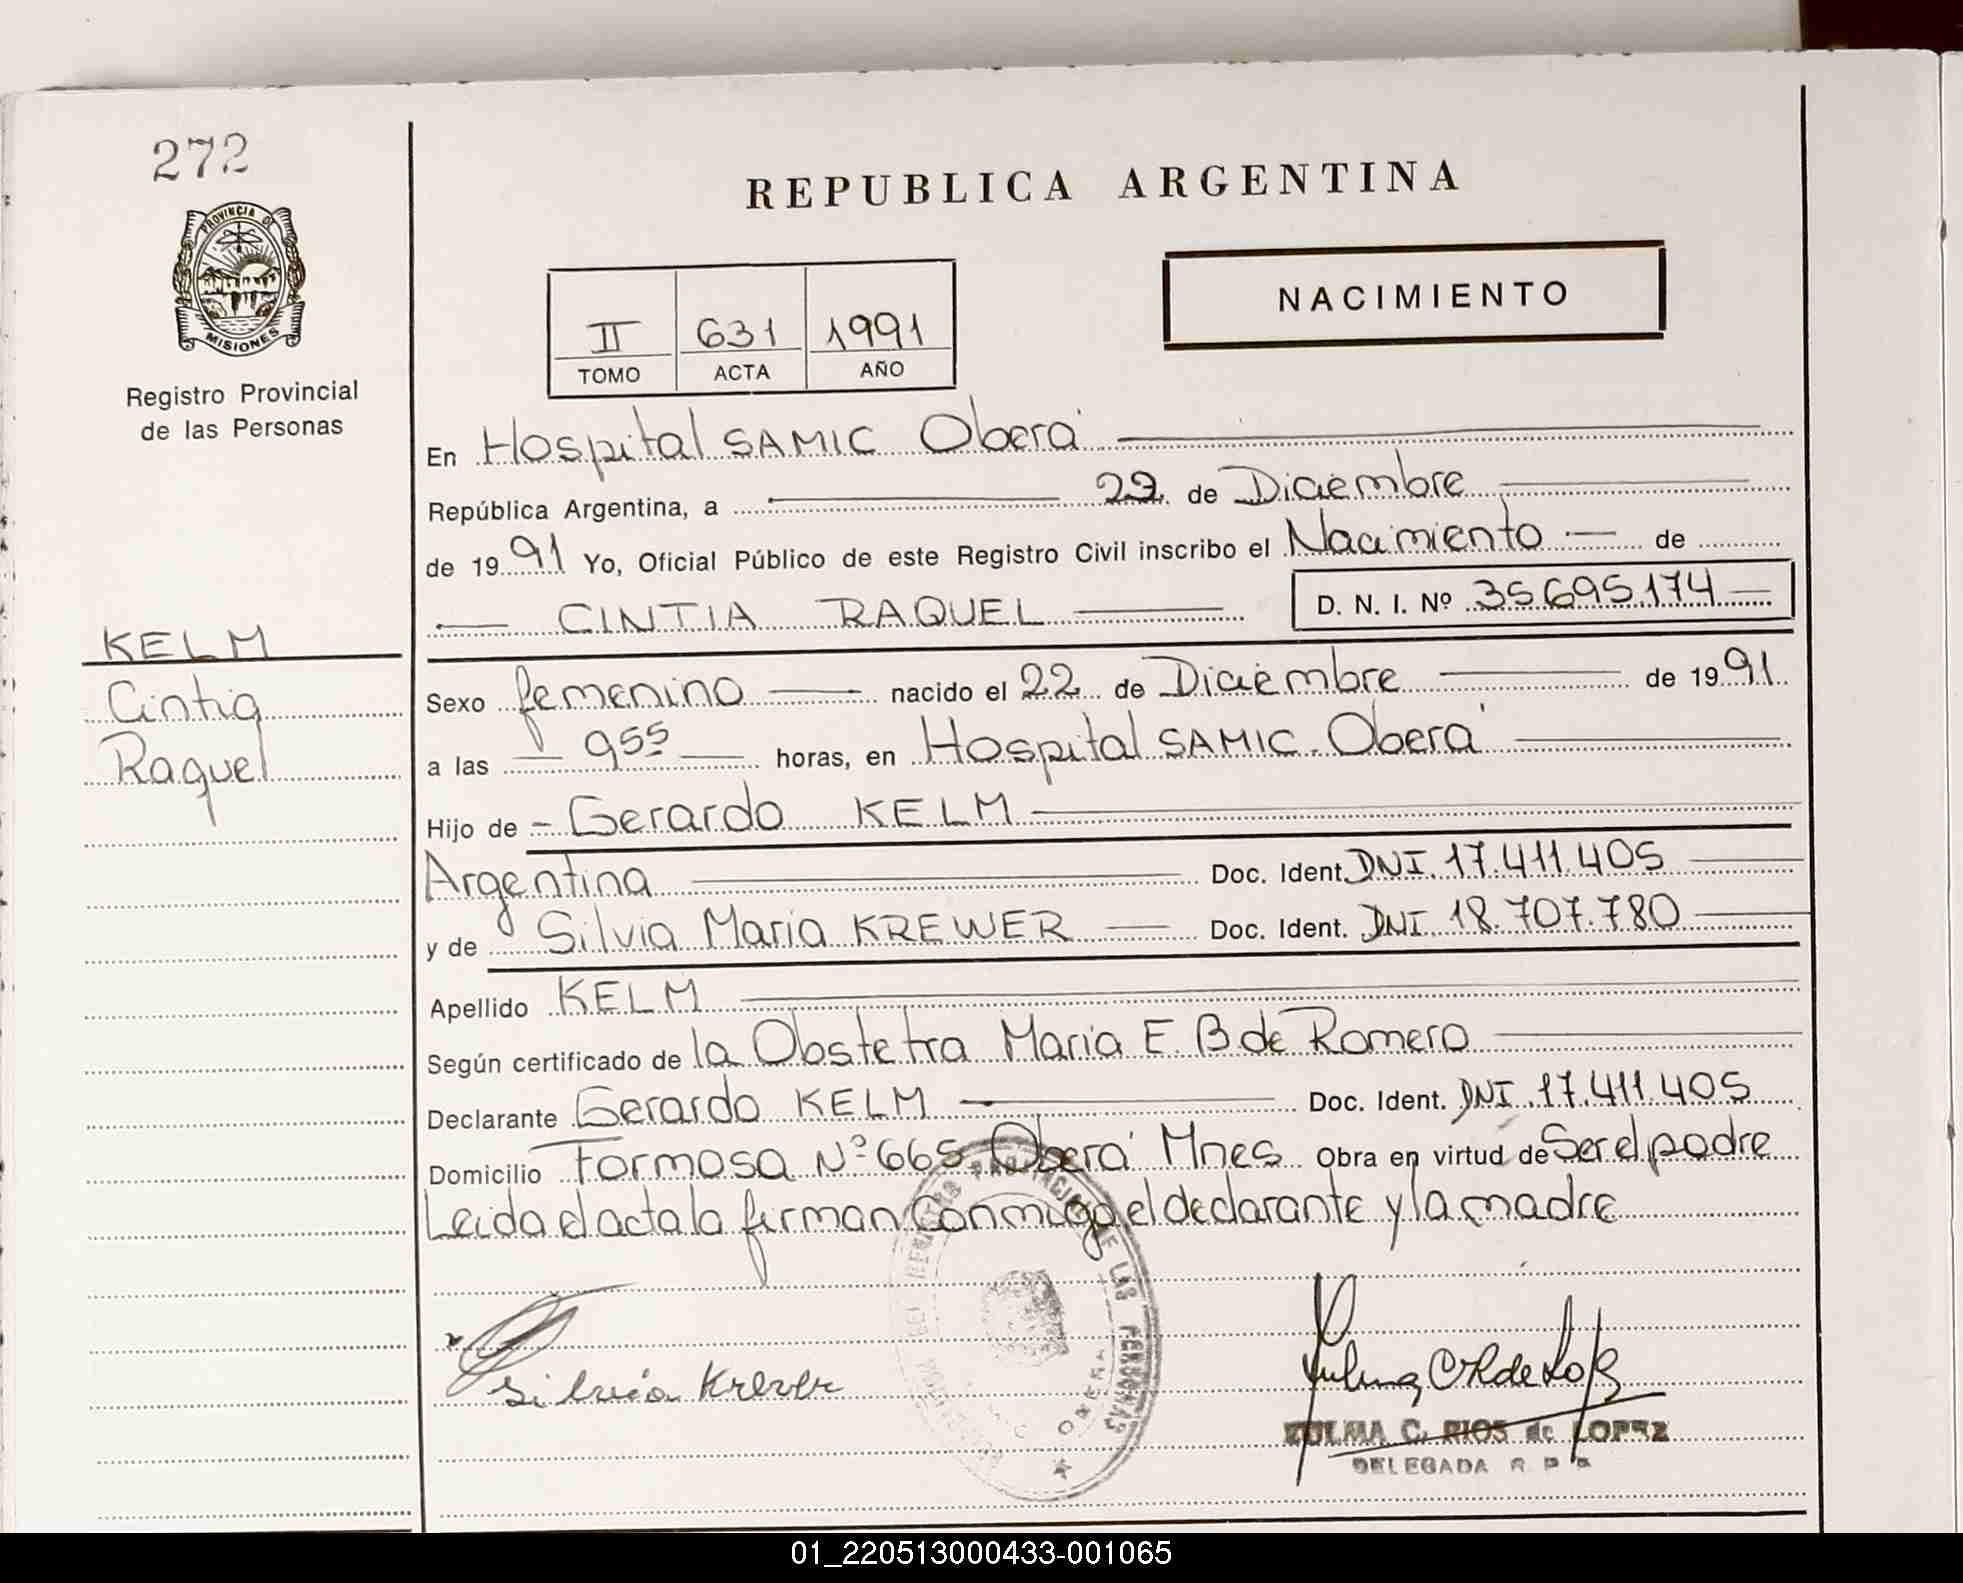 272
PROVINCIA DE
MISIONES
Registro Provincial
de las Personas
KELM
Cintia
Raquel
REPUBLICA ARGENTINA
II 631 1991
TOMO ACTA AÑO
NACIMIENTO
En Hospital SAMIC Oberá
República Argentina, a 23 de Diciembre
de 1991 Yo, Oficial Público de este Registro Civil inscribo el Nacimiento de
CINTIA RAQUEL D. N. I. Nº 35.695.174
Sexo femenino nacido el 22 de Diciembre de 1991
a las 9 55 horas, en Hospital SAMIC. Oberá
Hijo de Gerardo KELM
Argentina Doc. Ident. DNI. 17.411.405
y de Silvia Maria KREWER Doc. Ident. DNI 18.707.780
Apellido KELM
Según certificado de la Obstetra Maria E B de Romero
Declarante Gerardo KELM Doc. Ident. DNI. 17.411.405
Domicilio Formosa Nº 665 Oberá Mnes Obra en virtud de Ser el padre
Leida el acta la firman Conmigo el declarante y la madre
REGISTRO PROVINCIAL DE LAS PERSONAS
OBERA
Silvia Krewer
ZULMA C. RIOS de LOPEZ
DELEGADA R. P. P.
01_220513000433-001065